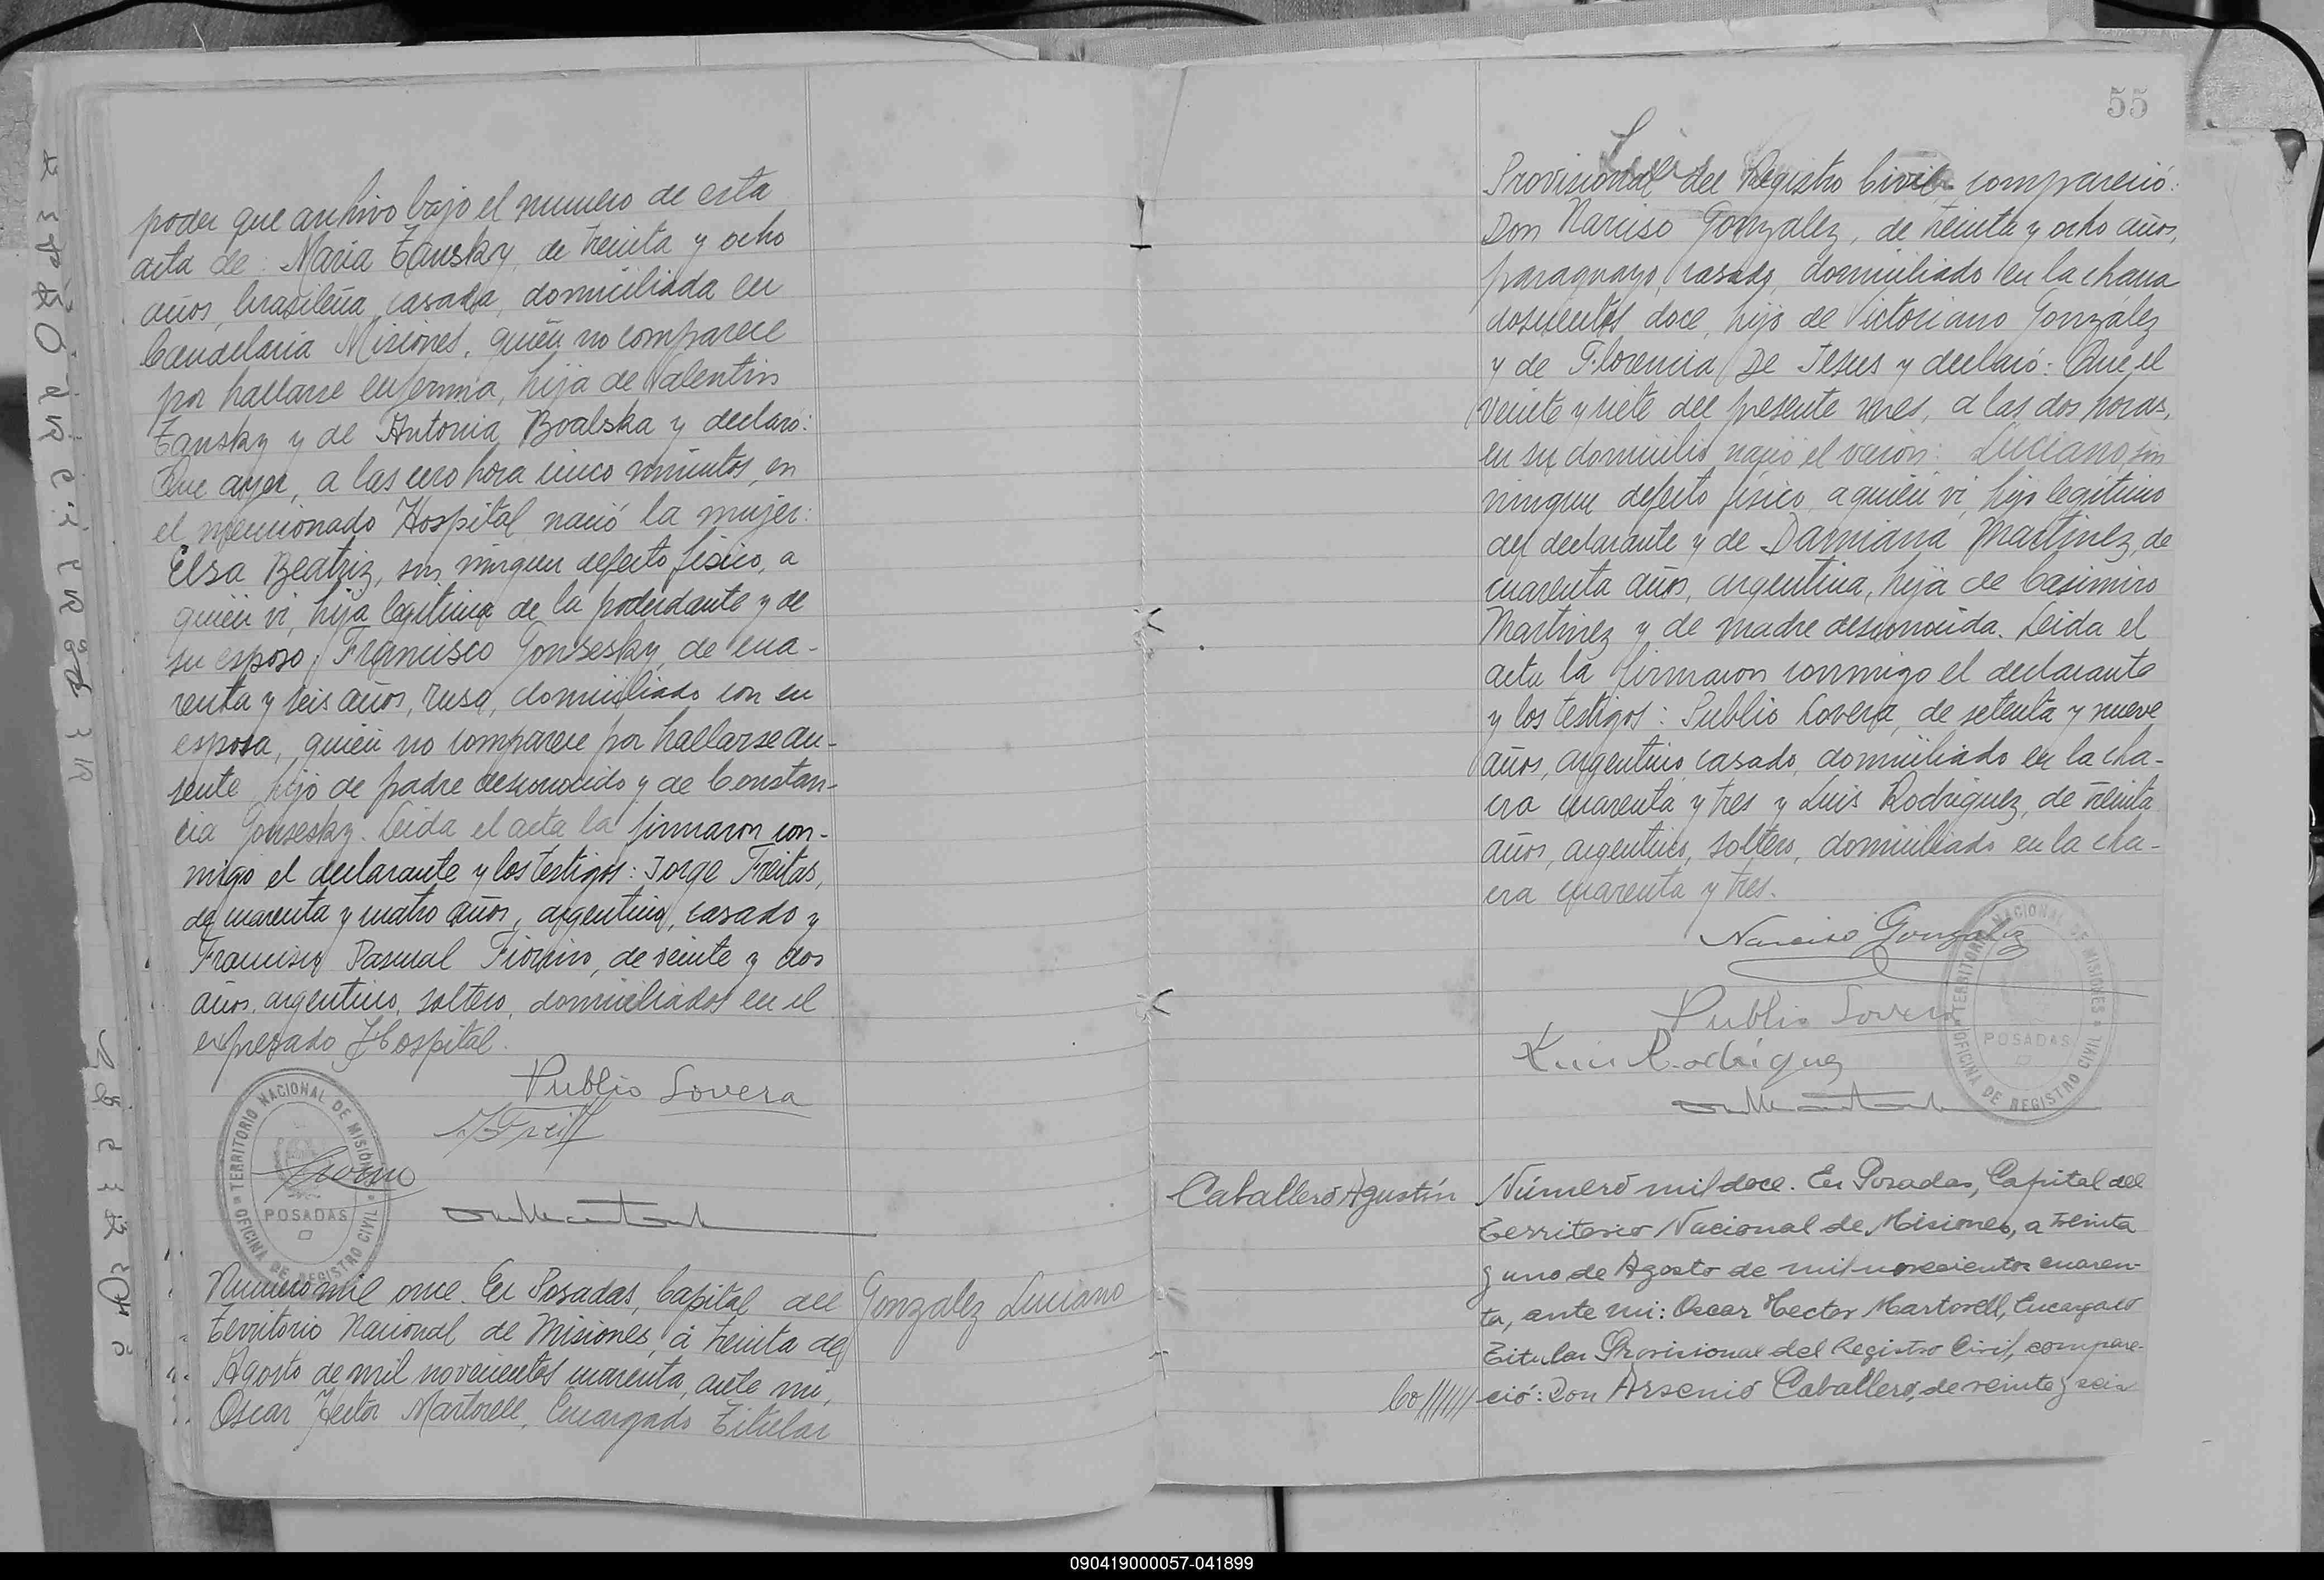 poder que archivo bajo el numero de esta
acta de: Maria Zansky, de treinta y ocho
años, brasileña, casada, domiciliada en
Candelaria Misiones, quién no comparece
por hallarse enferma, hija de Valentin
Zansky y de Antonia Boalska y declaró:
Que ayer, a las cero hora cinco minutos, en
el mencionado Hospital nació la mujer:
Elsa Beatriz, sin ningun defecto fisico, a
quién vi, hija legitima de la poderdante y de
su esposo: Francisco Gonsesky, de cua-
renta y seis años, ruso, domiciliado con su
esposa, quién no comparece por hallarse au-
sente, hijo de padre desconocido y de Constan-
cia Gonsesky. Leida el acta la firmaron con-
migo el declarante y los testigos: Jorge Freitas,
de cuarenta y cuatro años, argentino, casado y
Francisco Pascual Fiorino, de veinte y dos
años, argentino, soltero, domiciliados en el
expresado Hospital.
Publio Lovera
TERRITORIO NACIONAL DE MISIONES
POSADAS
OFICINA DE REGISTRO CIVIL
Numero mil once. En Posadas, Capital del
Gonzalez Luciano
Territorio Nacional de Misiones, á treinta de
Agosto de mil novecientos cuarenta, ante mi,
Oscar Hector Martorell, Encargado Titular
55
Provisional del Registro Civil, compareció:
Don Narciso Gonzalez, de treinta y ocho años,
paraguayo, casado, domiciliado en la chacra
doscientos doce, hijo de Victoriano González
y de Florencia De Jesus y declaró: Que el
veinte y siete del presente mes, a las dos horas,
en su domicilio nació el varón: Luciano, sin
ningun defecto fisico, a quién vi, hijo legitimo
del declarante y de Damiana Martinez, de
cuarenta años, argentina, hija de Casimiro
Martinez y de madre desconocida. Leida el
acta la firmaron conmigo el declarante
y los testigos: Publio Lovera, de setenta y nueve
años, argentino, casado, domiciliado en la cha-
cra cuarenta y tres y Luis Rodriguez, de treinta
años, argentino, soltero, domiciliado en la cha-
cra cuarenta y tres.
Narciso Gonzalez
Publio Lovera
Luis Rodriguez
TERRITORIO NACIONAL DE MISIONES
POSADAS
OFICINA DE REGISTRO CIVIL
Caballero Agustín
Número mil doce. En Posadas, Capital del
Territorio Nacional de Misiones, a treinta
y uno de Agosto de mil novecientos cuaren-
ta, ante mi: Oscar Hector Martorell, Encargado
Titular Provisional del Registro Civil, compare-
ció: Don Arsenio Caballero, de veinte y seis
090419000057-041899